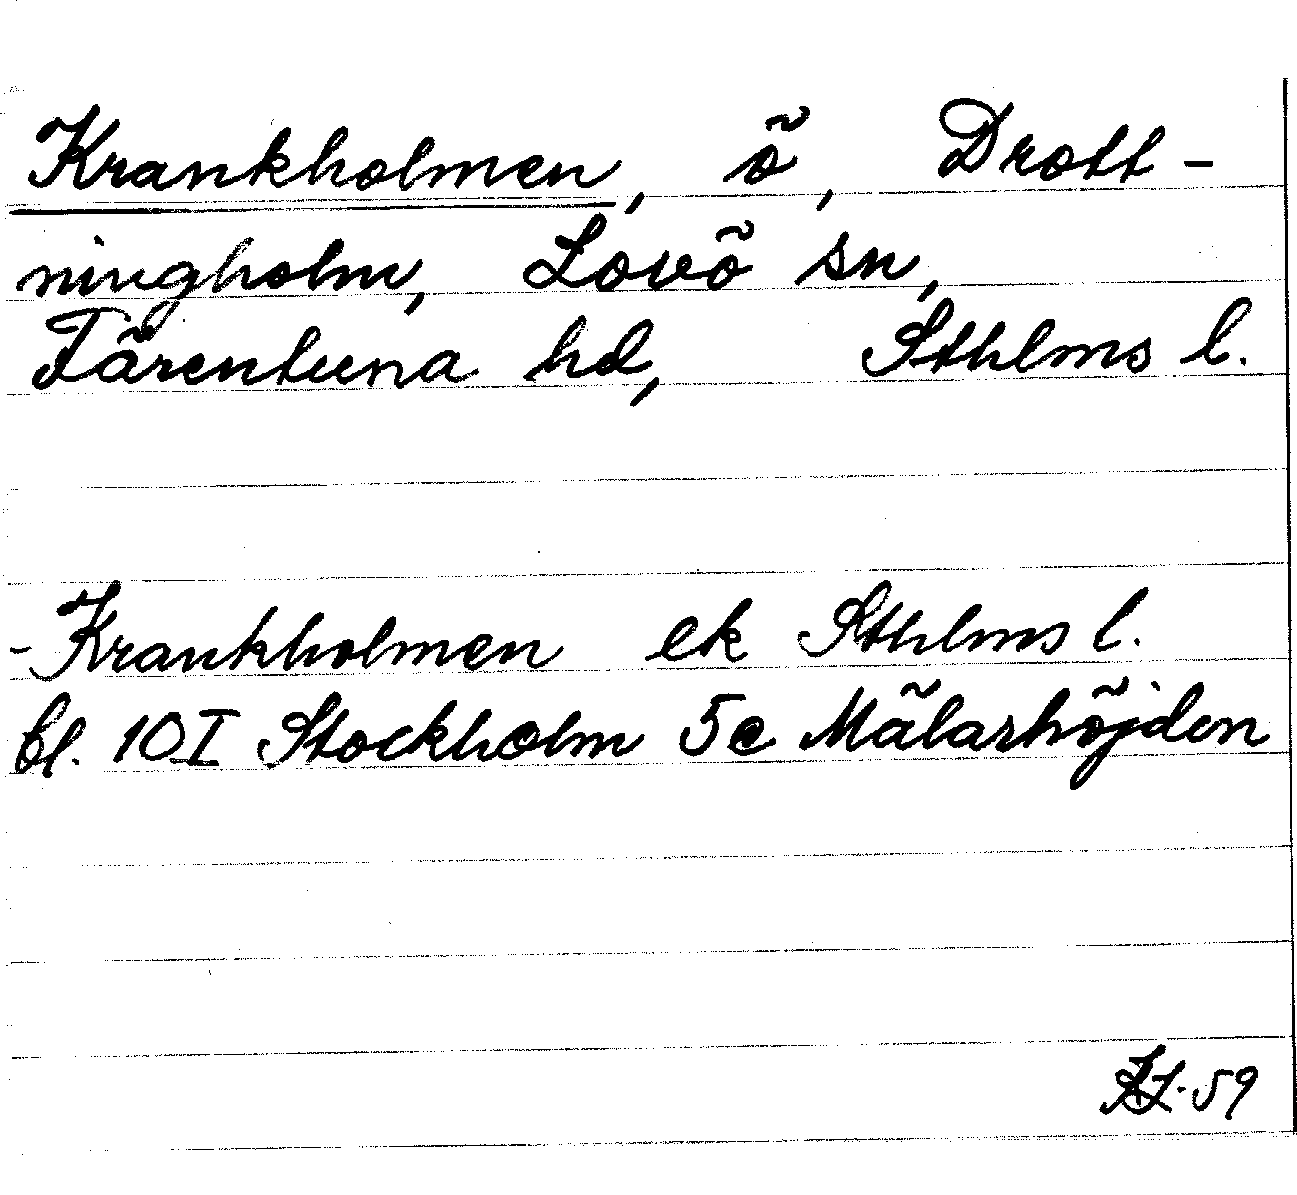 Krankholmen, ö, Drott-
ningholm, Lovö sn,
Färentuna hd, Sthlms l.
-Krankholmen ek Sthlms l.
bl. 10I Stockholm 5c Mälarhöjden
59